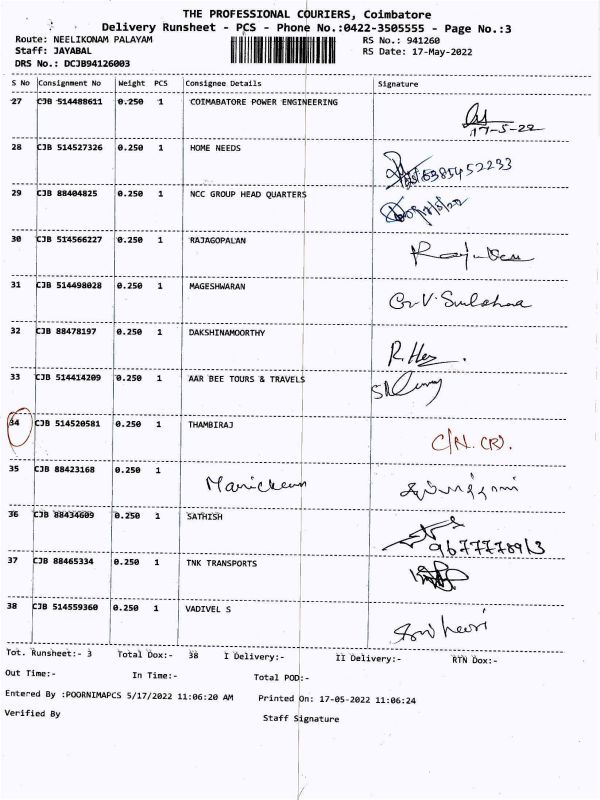 THE PROFESSIONAL COURIERS, Coimbatore
Delivery Runsheet - PCS - Phone No.:0422-3505555 - Page No.:3
Route: NEELIKONAM PALAYAM
RS No.: 941260
Staff: JAYABAL
RS Date: 17-May-2022
DRS No.: DCJB94126003
S No Consignment No Weight PCS Consignee Details Signature
27 CJB 514488611 0.250 1 COIMABATORE POWER ENGINEERING
17-5-22
28 CJB 514527326 0.250 1 HOME NEEDS
6385452233
29 CJB 88404825 0.250 1 NCC GROUP HEAD QUARTERS
30 CJB 514566227 0.250 1 RAJAGOPALAN
31 CJB 514498028 0.250 1 MAGESHWARAN
32 CJB 88478197 0.250 1 DAKSHINAMOORTHY
33 CJB 514414209 0.250 1 AAR BEE TOURS & TRAVELS
34 CJB 514520581 0.250 1 THAMBIRAJ
C/N. (R).
35 CJB 88423168 0.250 1
36 CJB 88434609 0.250 1 SATHISH
9677778913
37 CJB 88465334 0.250 1 TNK TRANSPORTS
38 CJB 514559360 0.250 1 VADIVEL S
Tot. Runsheet:- 3 Total Dox:- 38 I Delivery:- II Delivery:- RTN Dox:-
Out Time:- In Time:- Total POD:-
Entered By :POORNIMAPCS 5/17/2022 11:06:20 AM Printed On: 17-05-2022 11:06:24
Verified By Staff Signature